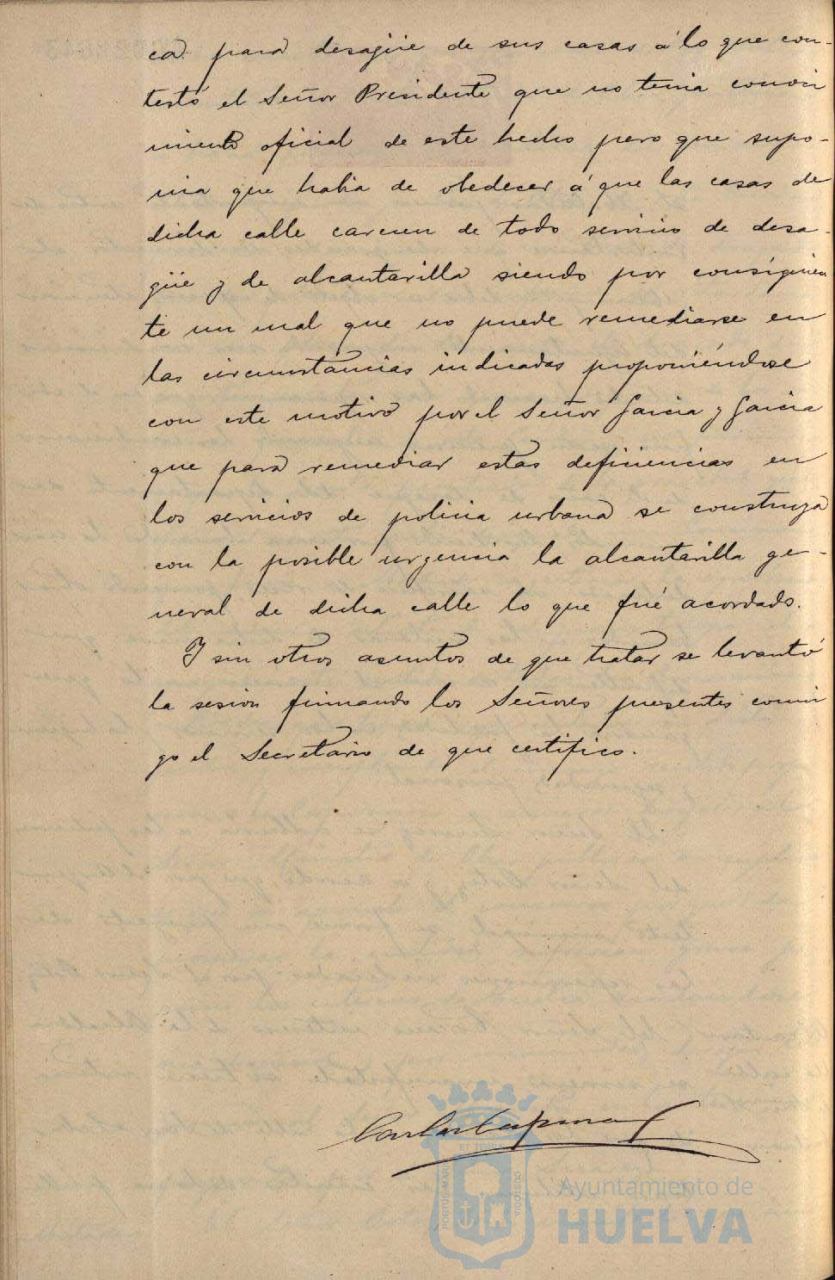 ca para desagüe de sus casas á lo que con-
testó el Señor Presidente que no tenia conoci
miento oficial de este hecho pero que supo-
nia que habia de obedecer á que las casas de
dicha calle carecen de todo servicio de desa-
güe y de alcantarilla siendo por consiguien
te un mal que no puede remediarse en
las circunstancias indicadas proponiéndose
con este motivo por el Señor Garcia y Garcia
que para remediar estas deficiencias en
los servicios de policia urbana se construya
con la posible urgencia la alcantarilla ge-
neral de dicha calle lo que fué acordado.
Y sin otros asuntos de que tratar se levantó
la sesion firmando los Señores presentes conmi
go el Secretario de que certifico.
Carlos
Ayuntamiento de
HUELVA